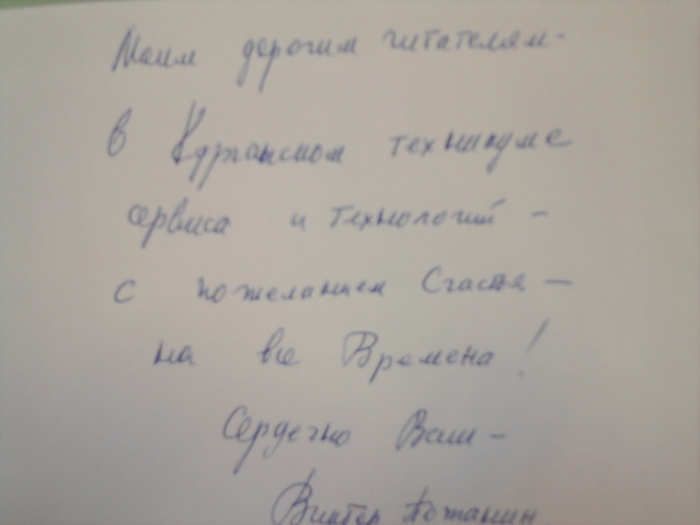 Моим дорогим читателям-
в Курганском техникуме
сервиса и технологий -
с пожеланием Счастья -
на все Времена!
Сердечно Ваш -
Виктор Потанин